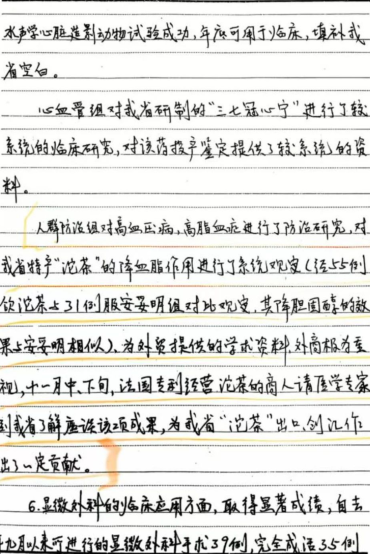 水声学心脏造影动物试验成功，年底可用于临床，填补我
省空白。
心血管组对我省研制的“三七冠心宁”进行了较
系统的临床研究，对该药投产鉴定提供了较系统的资
料。
人群防治组对高血压病，高脂血症进行了防治研究，对
我省特产“沱茶”的降血脂作用进行了系统观察（经55例
饮沱茶与31例服安妥明组对比观察，其降胆固醇的效
果与安妥明相似）、为外贸提供的学术资料，外商极为重
视，十一月中、下旬，法国专利经营沱茶的商人请医学专家
到我省了解座谈该项成果，为我省“沱茶”出口、创汇作
出了一定贡献。
6.显微外科的临床应用方面，取得显著成绩，自去
九月以来可进行的显微外科手术39例，完全成活35例